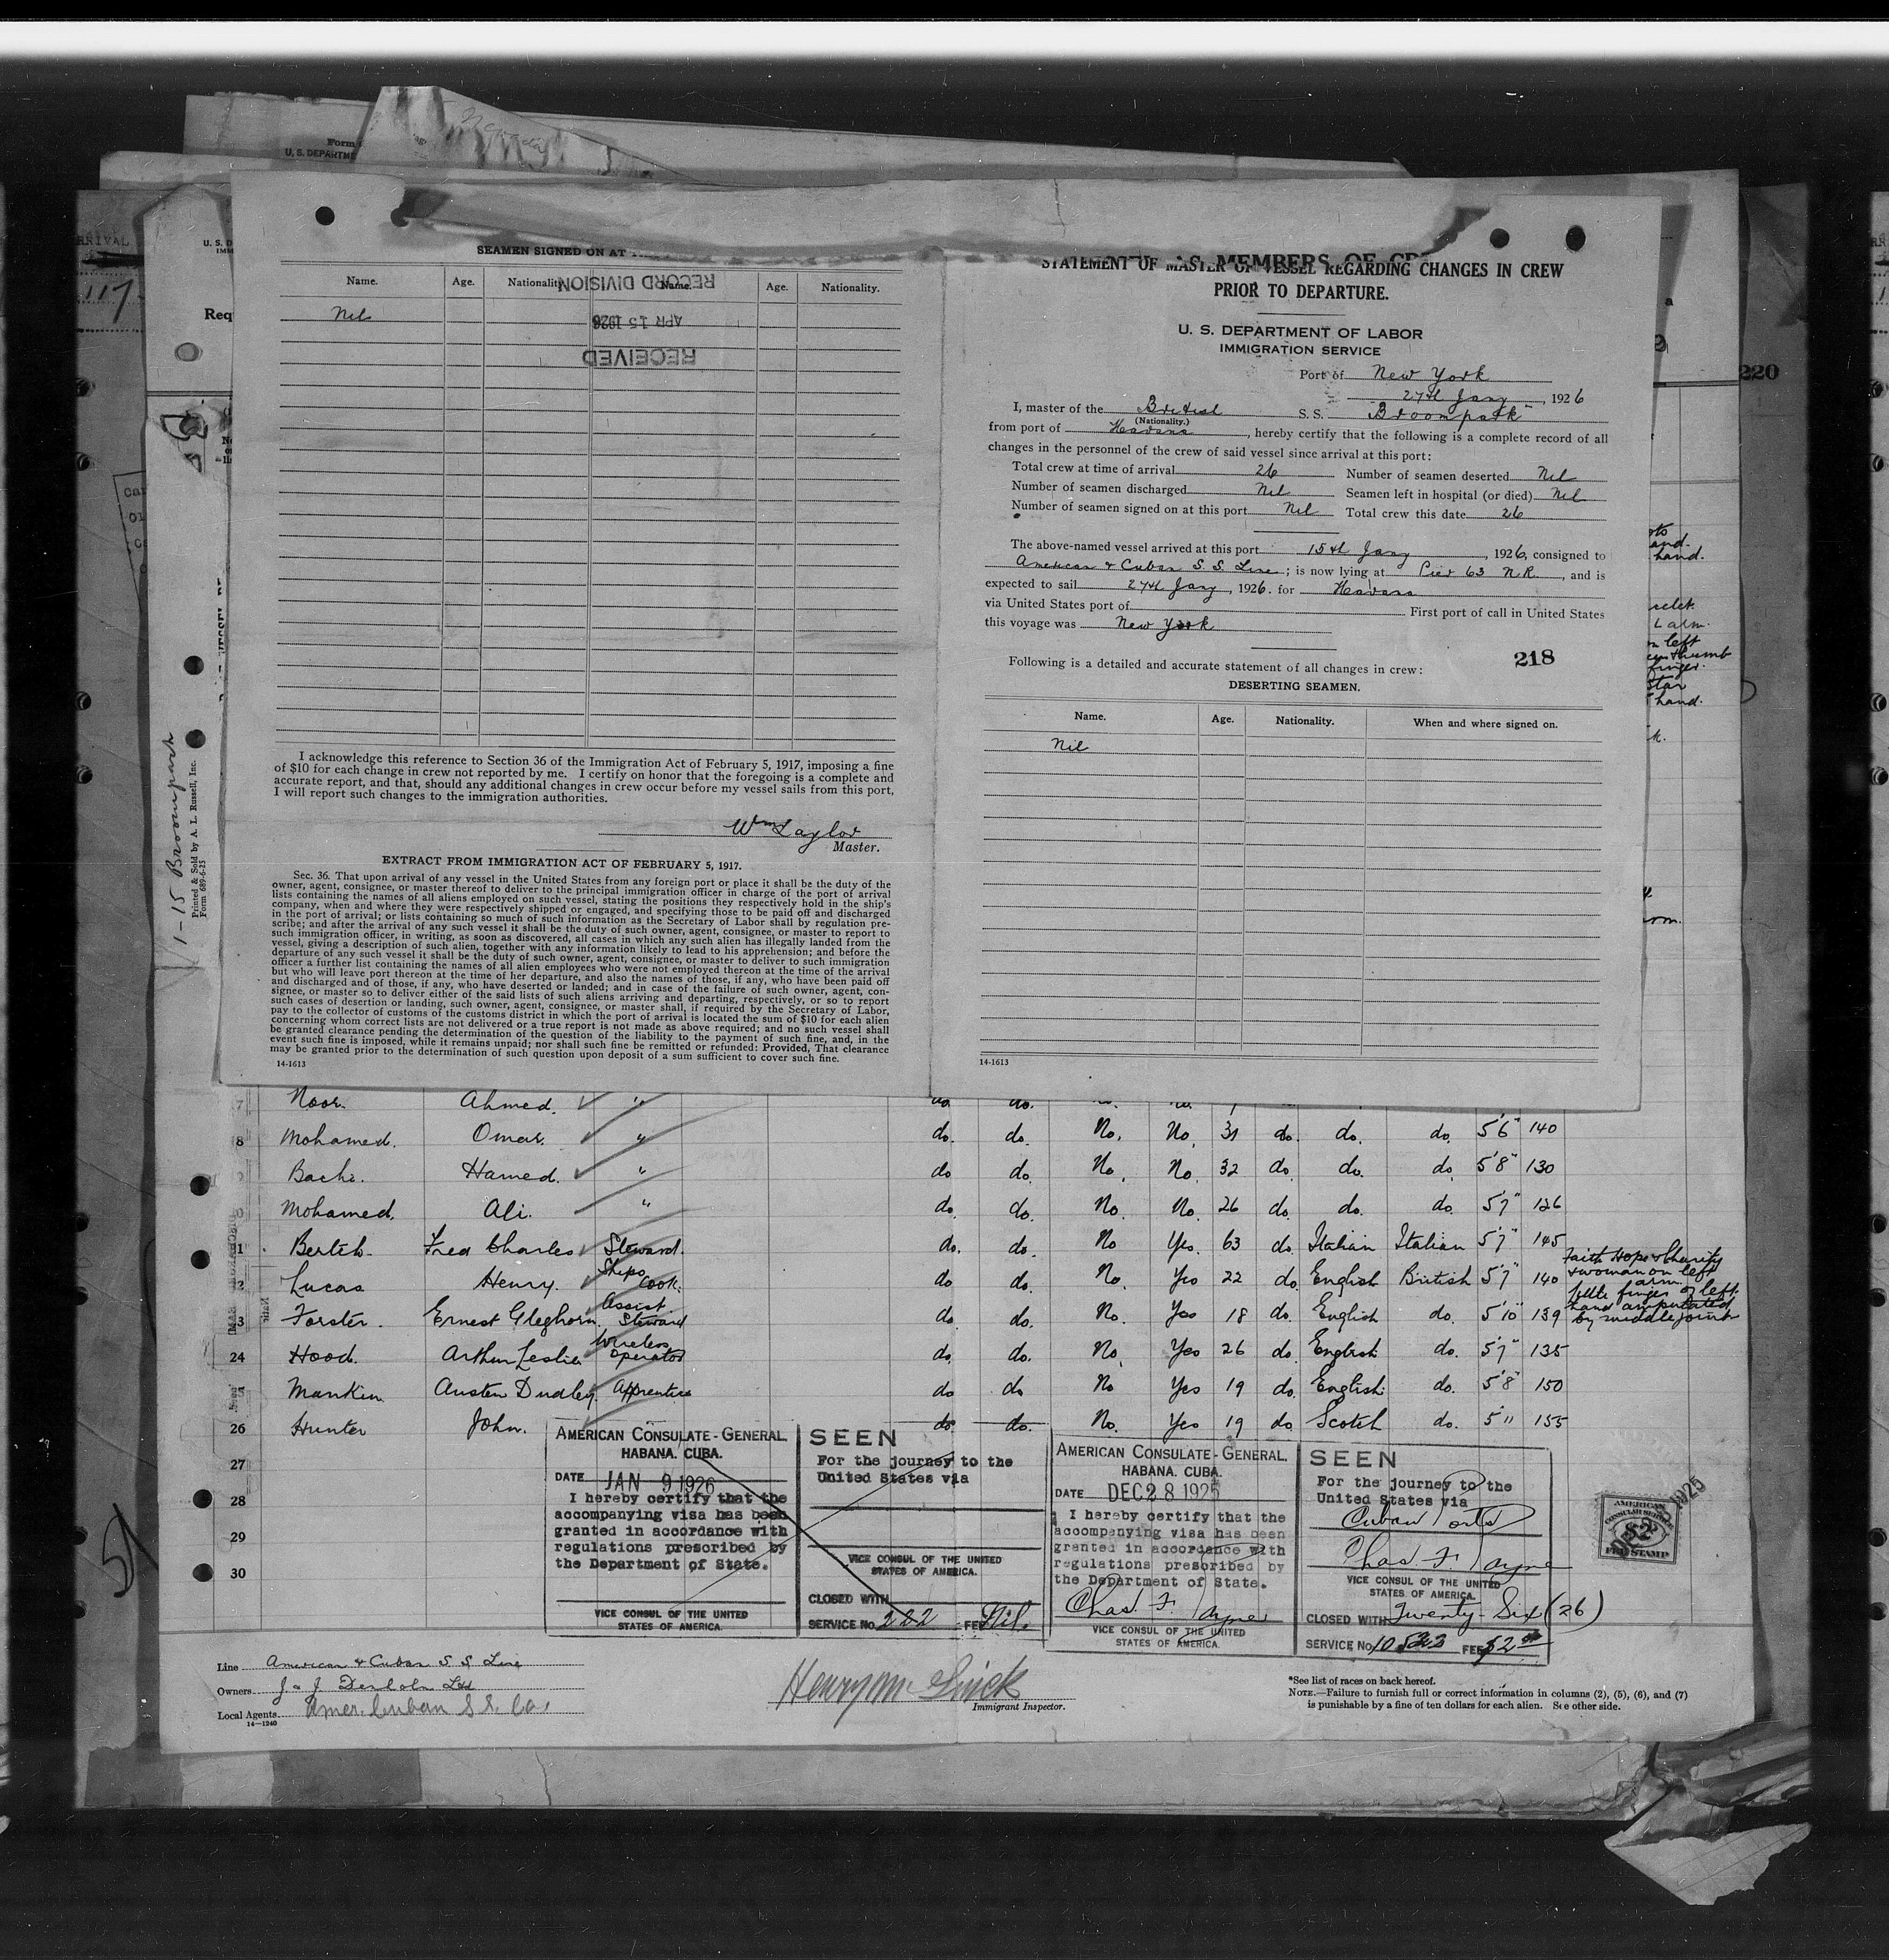 Form
U. S. DEPARTME
RRIVAL
117
U. S. D
IMM
Req
220
SEAMEN SIGNED ON AT
Name. Age. Nationality. Name. Age. Nationality.
Nil
RECORD DIVISION
APR 15 1926
RECEIVED
I acknowledge this reference to Section 36 of the Immigration Act of February 5, 1917, imposing a fine
of $10 for each change in crew not reported by me. I certify on honor that the foregoing is a complete and
accurate report, and that, should any additional changes in crew occur before my vessel sails from this port,
I will report such changes to the immigration authorities.
Wm Taylor
Master.
EXTRACT FROM IMMIGRATION ACT OF FEBRUARY 5, 1917.
Sec. 36. That upon arrival of any vessel in the United States from any foreign port or place it shall be the duty of the
owner, agent, consignee, or master thereof to deliver to the principal immigration officer in charge of the port of arrival
lists containing the names of all aliens employed on such vessel, stating the positions they respectively hold in the ship's
company, when and where they were respectively shipped or engaged, and specifying those to be paid off and discharged
in the port of arrival; or lists containing so much of such information as the Secretary of Labor shall by regulation pre-
scribe; and after the arrival of any such vessel it shall be the duty of such owner, agent, consignee, or master to report to
such immigration officer, in writing, as soon as discovered, all cases in which any such alien has illegally landed from the
vessel, giving a description of such alien, together with any information likely to lead to his apprehension; and before the
departure of any such vessel it shall be the duty of such owner, agent, consignee, or master to deliver to such immigration
officer a further list containing the names of all alien employees who were not employed thereon at the time of the arrival
but who will leave port thereon at the time of her departure, and also the names of those, if any, who have been paid off
and discharged and of those, if any, who have deserted or landed; and in case of the failure of such owner, agent, con-
signee, or master so to deliver either of the said lists of such aliens arriving and departing, respectively, or so to report
such cases of desertion or landing, such owner, agent, consignee, or master shall, if required by the Secretary of Labor,
pay to the collector of customs of the customs district in which the port of arrival is located the sum of $10 for each alien
concerning whom correct lists are not delivered or a true report is not made as above required; and no such vessel shall
be granted clearance pending the determination of the question of the liability to the payment of such fine, and, in the
event such fine is imposed, while it remains unpaid; nor shall such fine be remitted or refunded: Provided, That clearance
may be granted prior to the determination of such question upon deposit of a sum sufficient to cover such fine.
14-1613
STATEMENT OF MASTER OF VESSEL REGARDING CHANGES IN CREW
PRIOR TO DEPARTURE.
U. S. DEPARTMENT OF LABOR
IMMIGRATION SERVICE
Port of New York
27th Jany, 1926
I, master of the British S. S. "Broompark"
(Nationality.)
from port of Havana, hereby certify that the following is a complete record of all
changes in the personnel of the crew of said vessel since arrival at this port:
Total crew at time of arrival 26 Number of seamen deserted Nil
Number of seamen discharged Nil Seamen left in hospital (or died) Nil
Number of seamen signed on at this port Nil Total crew this date 26
The above-named vessel arrived at this port 15th Jany, 1926, consigned to
American & Cuban S. S. Line; is now lying at Pier 63 N.R., and is
expected to sail 27th Jany, 1926. for Havana
via United States port of First port of call in United States
this voyage was New York
218
Following is a detailed and accurate statement of all changes in crew:
DESERTING SEAMEN.
Name. Age. Nationality. When and where signed on.
Nil
14-1613
1-15 Broompark
Printed & Sold by A. L. Russell, Inc.
Form 689-6-25
and.
hand.
L arm.
left
thumb
finger.
Star
hand.
7 Noor. Ahmed. " do. do. No. No.
8 Mohamed. Omar. " do. do. No. No. 31 do. do. do. 5'6" 140
Bach. Hamed. " do do. No. No. 32 do. do. do. 5'8" 130
0 Mohamed. Ali. " do. do. No. No. 26 do. do. do. 5'7" 126
1 Bertch. Fred Charles Steward. do. do. No Yes. 63 do. Italian Italian 5'7" 145
2 Lucas Henry. Ships Cook. do. do. No. Yes 22 do. English British 5'7" 140 Faith Hope & Charity & woman on left arm.
3 Forster. Ernest Gleghorn. Assist. Steward do. do. No. Yes 18 do. English do. 5'10" 139 little finger of left hand amputated by middle joint
24 Hood. Arthur Leslie Wireless Operator do. do. No. Yes 26 do. English do. 5'7" 135
5 Mankin Austen Dudley. Apprentice do do No Yes 19 do. English. do. 5'8" 150
26 Hunter John. do. do. No. Yes 19 do. Scotch do. 5'11 155
27
28
29
30
AMERICAN CONSULATE-GENERAL.
HABANA. CUBA.
DATE JAN 9 1926
I hereby certify that the
accompanying visa has been
granted in accordance with
regulations prescribed by
the Department of State.
VICE CONSUL OF THE UNITED
STATES OF AMERICA.
SEEN
For the journey to the
United States via
VICE CONSUL OF THE UNITED
STATES OF AMERICA.
CLOSED WITH
SERVICE No. 222 FEE Nil.
AMERICAN CONSULATE-GENERAL.
HABANA. CUBA.
DATE DEC 28 1925
I hereby certify that the
accompanying visa has been
granted in accordance with
regulations prescribed by
the Department of State.
Chas. F. Payne
VICE CONSUL OF THE UNITED
STATES OF AMERICA.
SEEN
For the journey to the
United States via
Cuban Ports
Chas. F. Payne
VICE CONSUL OF THE UNITED
STATES OF AMERICA.
CLOSED WITH Twenty-Six (26)
SERVICE No. FEE $2
AMERICAN
CONSULAR SERVICE
$2
FEE STAMP
1925
Line American & Cuban S S Line
Owners J & J Denholm Ltd
Local Agents Amer. Cuban S S. Co.
14-1240
Immigrant Inspector.
*See list of races on back hereof.
NOTE.—Failure to furnish full or correct information in columns (2), (5), (6), and (7)
is punishable by a fine of ten dollars for each alien. See other side.